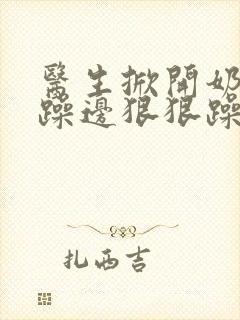 醫生掀開奶
躁邊狠狠躁
扎西吉